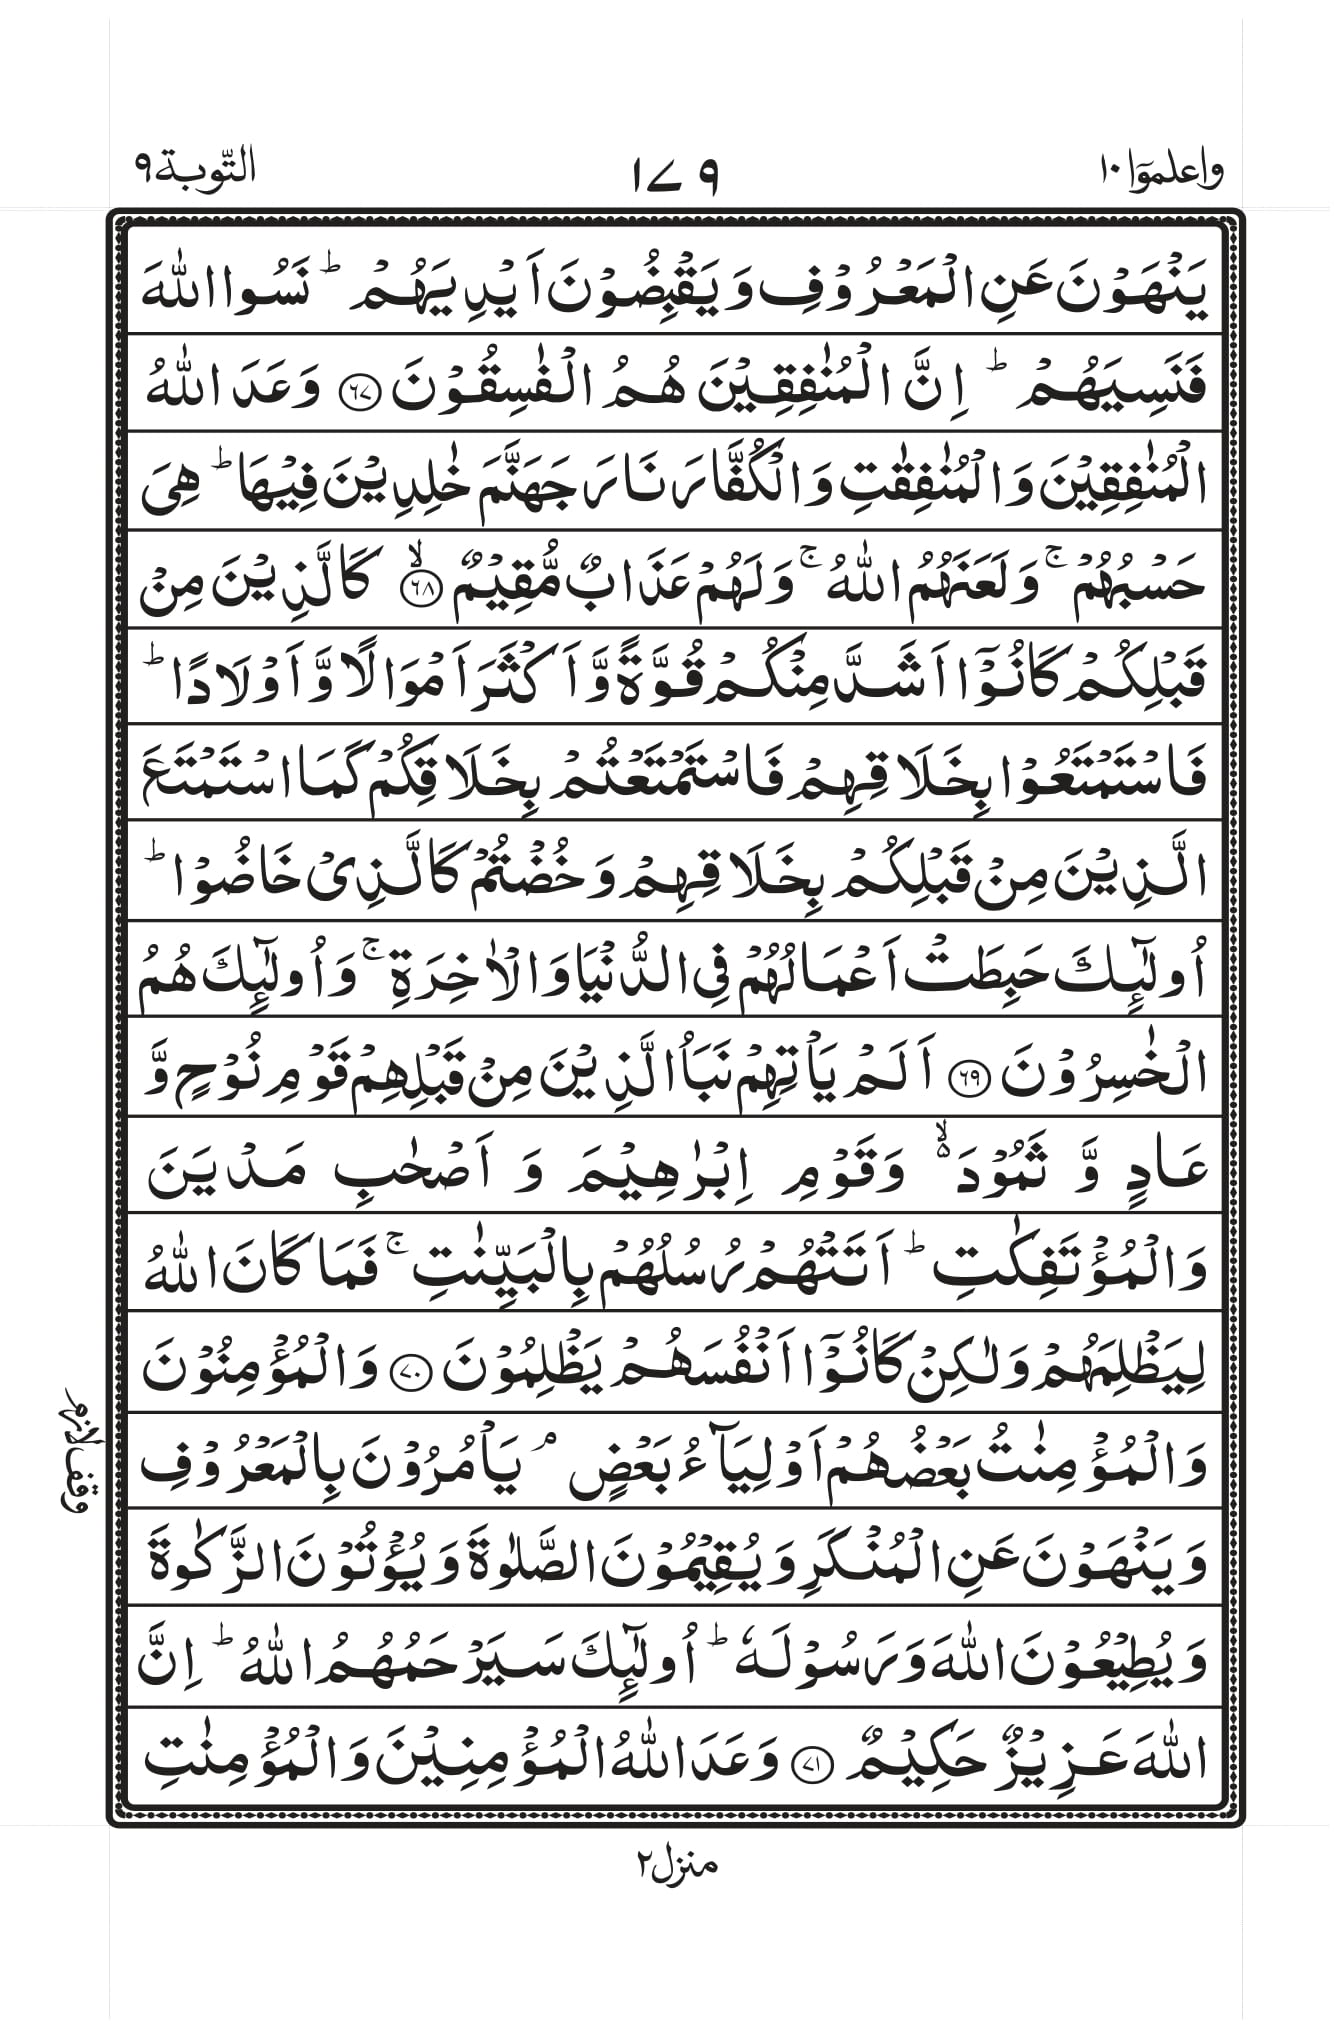 واعلموٓا ١٠
١٧٩
التّوبة ٩
يَنْهَوْنَ عَنِ الْمَعْرُوْفِ وَ يَقْبِضُوْنَ اَيْدِيَهُمْ ؕ نَسُوا اللّٰهَ
فَنَسِيَهُمْ ؕ اِنَّ الْمُنٰفِقِيْنَ هُمُ الْفٰسِقُوْنَ ﴿٦٧﴾ وَعَدَ اللّٰهُ
الْمُنٰفِقِيْنَ وَ الْمُنٰفِقٰتِ وَ الْكُفَّارَ نَارَ جَهَنَّمَ خٰلِدِيْنَ فِيْهَا ؕ هِيَ
حَسْبُهُمْ ۚ وَ لَعَنَهُمُ اللّٰهُ ۚ وَ لَهُمْ عَذَابٌ مُّقِيْمٌ ۙ﴿٦٨﴾ كَالَّذِيْنَ مِنْ
قَبْلِكُمْ كَانُوْٓا اَشَدَّ مِنْكُمْ قُوَّةً وَّ اَكْثَرَ اَمْوَالًا وَّ اَوْلَادًا ؕ
فَاسْتَمْتَعُوْا بِخَلَاقِهِمْ فَاسْتَمْتَعْتُمْ بِخَلَاقِكُمْ كَمَا اسْتَمْتَعَ
الَّذِيْنَ مِنْ قَبْلِكُمْ بِخَلَاقِهِمْ وَ خُضْتُمْ كَالَّذِيْ خَاضُوْا ؕ
اُولٰٓئِكَ حَبِطَتْ اَعْمَالُهُمْ فِي الدُّنْيَا وَ الْاٰخِرَةِ ۚ وَ اُولٰٓئِكَ هُمُ
الْخٰسِرُوْنَ ﴿٦٩﴾ اَلَمْ يَاْتِهِمْ نَبَاُ الَّذِيْنَ مِنْ قَبْلِهِمْ قَوْمِ نُوْحٍ وَّ
عَادٍ وَّ ثَمُوْدَ ۙ۬ وَ قَوْمِ اِبْرٰهِيْمَ وَ اَصْحٰبِ مَدْيَنَ
وَ الْمُؤْتَفِكٰتِ ؕ اَتَتْهُمْ رُسُلُهُمْ بِالْبَيِّنٰتِ ۚ فَمَا كَانَ اللّٰهُ
لِيَظْلِمَهُمْ وَ لٰكِنْ كَانُوْٓا اَنْفُسَهُمْ يَظْلِمُوْنَ ﴿٧٠﴾ وَ الْمُؤْمِنُوْنَ
وَ الْمُؤْمِنٰتُ بَعْضُهُمْ اَوْلِيَآءُ بَعْضٍ ۘ يَاْمُرُوْنَ بِالْمَعْرُوْفِ
وَ يَنْهَوْنَ عَنِ الْمُنْكَرِ وَ يُقِيْمُوْنَ الصَّلٰوةَ وَ يُؤْتُوْنَ الزَّكٰوةَ
وَ يُطِيْعُوْنَ اللّٰهَ وَ رَسُوْلَهٗ ؕ اُولٰٓئِكَ سَيَرْحَمُهُمُ اللّٰهُ ؕ اِنَّ
اللّٰهَ عَزِيْزٌ حَكِيْمٌ ﴿٧١﴾ وَعَدَ اللّٰهُ الْمُؤْمِنِيْنَ وَ الْمُؤْمِنٰتِ
وقف لازم
منزل ٢